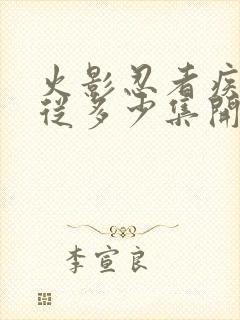 火影忍者疾
從多少集開
李宣良